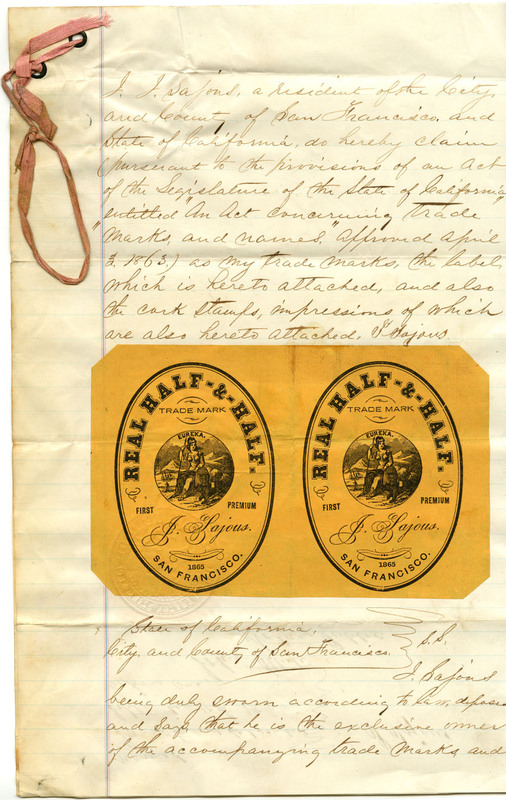 I, J. Sajous, a resident of the City
and County of San Francisco, and
State of California, do hereby claim
(pursuant to the provisions of an Act
of the Legislature of the State of California
entitled "An Act concerning trade
marks, and names," approved April
3. 1863,) as my trade marks, the label,
which is hereto attached, and also
the cork stamps, impressions of which
are also hereto attached. J. Sajous
REAL HALF-&-HALF.
TRADE MARK
EUREKA.
FIRST PREMIUM
J. Sajous.
1865
SAN FRANCISCO.
REAL HALF-&-HALF.
TRADE MARK
EUREKA.
FIRST PREMIUM
J. Sajous.
1865
SAN FRANCISCO.
State of California,
City and County of San Francisco. } S.S.
J. Sajous
being duly sworn according to law, deposes
and says that he is the exclusive owner
of the accompanying trade marks, and